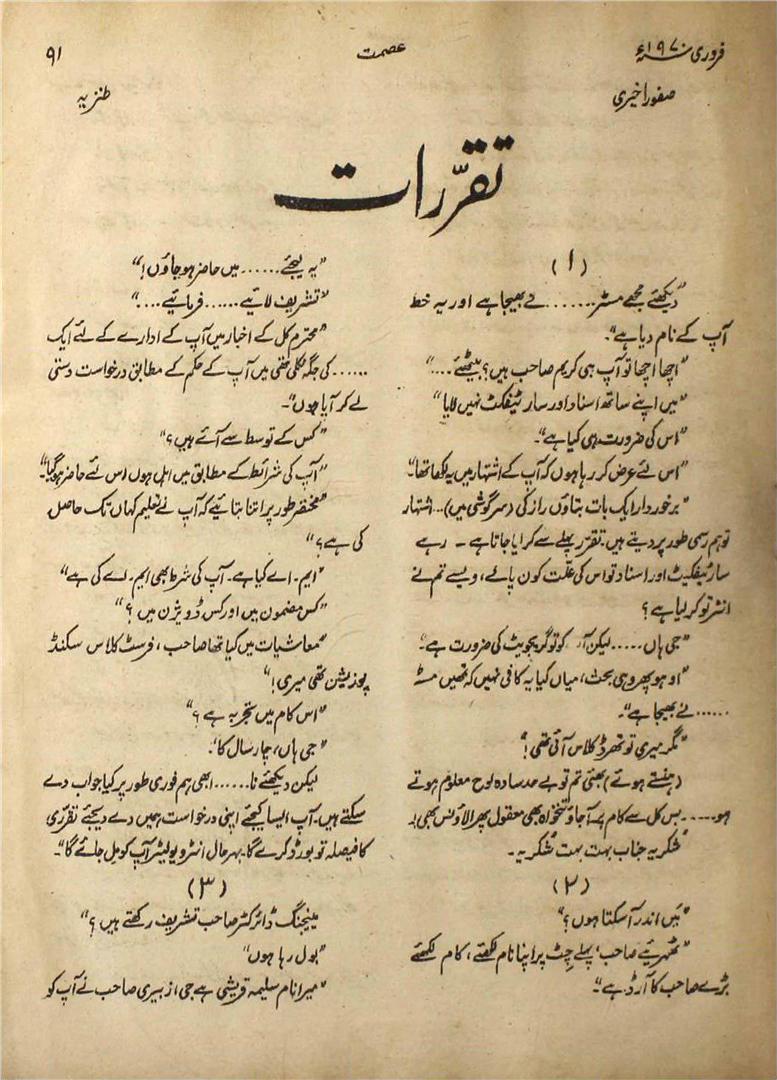 فروری سنہ ۱۹۷۰ء
عصمت
۹۱
صفورا خیری
طنزیہ
تقرّرات
(۱)
"دیکھئے مجھے مسٹر....... نے بھیجا ہے اور یہ خط
آپ کے نام دیا ہے"۔
"اچھا اچھا تو آپ ہی کریم صاحب ہیں؟ بیٹھئے...."
"میں اپنے ساتھ اسناد اور سارٹیفکٹ نہیں لایا"
"اس کی ضرورت ہی کیا ہے"۔
"اس لئے عرض کر رہا ہوں کہ آپ کے اشتہار میں یہ لکھا تھا"۔
"برخوردار ایک بات بتاؤں راز کی (سرگوشی میں)... اشتہار
تو ہم رسمی طور پر دیتے ہیں۔ تقرر پہلے سے کرایا جاتا ہے ۔ رہے
سارٹیفکیٹ اور اسناد تو اس کی علّت کون پالے، ویسے تم نے
انٹر تو کر لیا ہے؟
"جی ہاں..... لیکن آپ کو تو گریجویٹ کی ضرورت ہے"۔
"اوہو پھر وہی بحث، میاں کیا یہ کافی نہیں کہ تمہیں مسٹر
...... نے بھیجا ہے"۔
"مگر میری تو تھرڈ کلاس آئی تھی!"
(ہنستے ہوئے) بھئی تم تو بے حد سادہ لوح معلوم ہوتے
ہو..... بس کل سے کام پر آ جاؤ تنخواہ بھی معقول پھر الاؤنس بھی!۔
"شکریہ جناب بہت بہت شکریہ۔
(۲)
"میں اندر آ سکتا ہوں؟"
"ٹھہریئے صاحب، پہلے چٹ پر اپنا نام لکھئے، کام لکھئے
بڑے صاحب کا آرڈر ہے"۔
"یہ لیجئے...... میں حاضر ہو جاؤں!"
"تشریف لائیے...... فرمائیے...."
"محترم کل کے اخبار میں آپ کے ادارے کے لئے ایک
...... کی جگہ نکلی تھی میں آپ کے حکم کے مطابق درخواست دستی
لے کر آیا ہوں"۔
"کس کے توسط سے آئے ہیں؟"
"آپ کی شرائط کے مطابق میں اہل ہوں اس لئے حاضر ہو گیا"۔
"مختصر طور پر اتنا بتائیے کہ آپ نے تعلیم کہاں تک حاصل
کی ہے؟"
"ایم۔اے کیا ہے۔ آپ کی شرط بھی ایم۔اے کی ہے"
"کس مضمون میں اور کس ڈویژن میں؟"
"معاشیات میں کیا تھا صاحب، فرسٹ کلاس سکنڈ
پوزیشن تھی میری!"
"اس کام میں تجربہ ہے؟"
"جی ہاں، چار سال کا"۔
لیکن دیکھئے نا...... ابھی ہم فوری طور پر کیا جواب دے
سکتے ہیں۔ آپ ایسا کیجئے اپنی درخواست ہمیں دے دیجئے تقرری
کا فیصلہ تو بورڈ کرے گا۔ بہرحال انٹرویو لیٹر آپ کو مل جائے گا"۔
(۳)
مینجنگ ڈائرکٹر صاحب تشریف رکھتے ہیں؟"
"بول رہا ہوں"
"میرا نام سلیمہ قریشی ہے جی، زبیری صاحب نے آپ کو